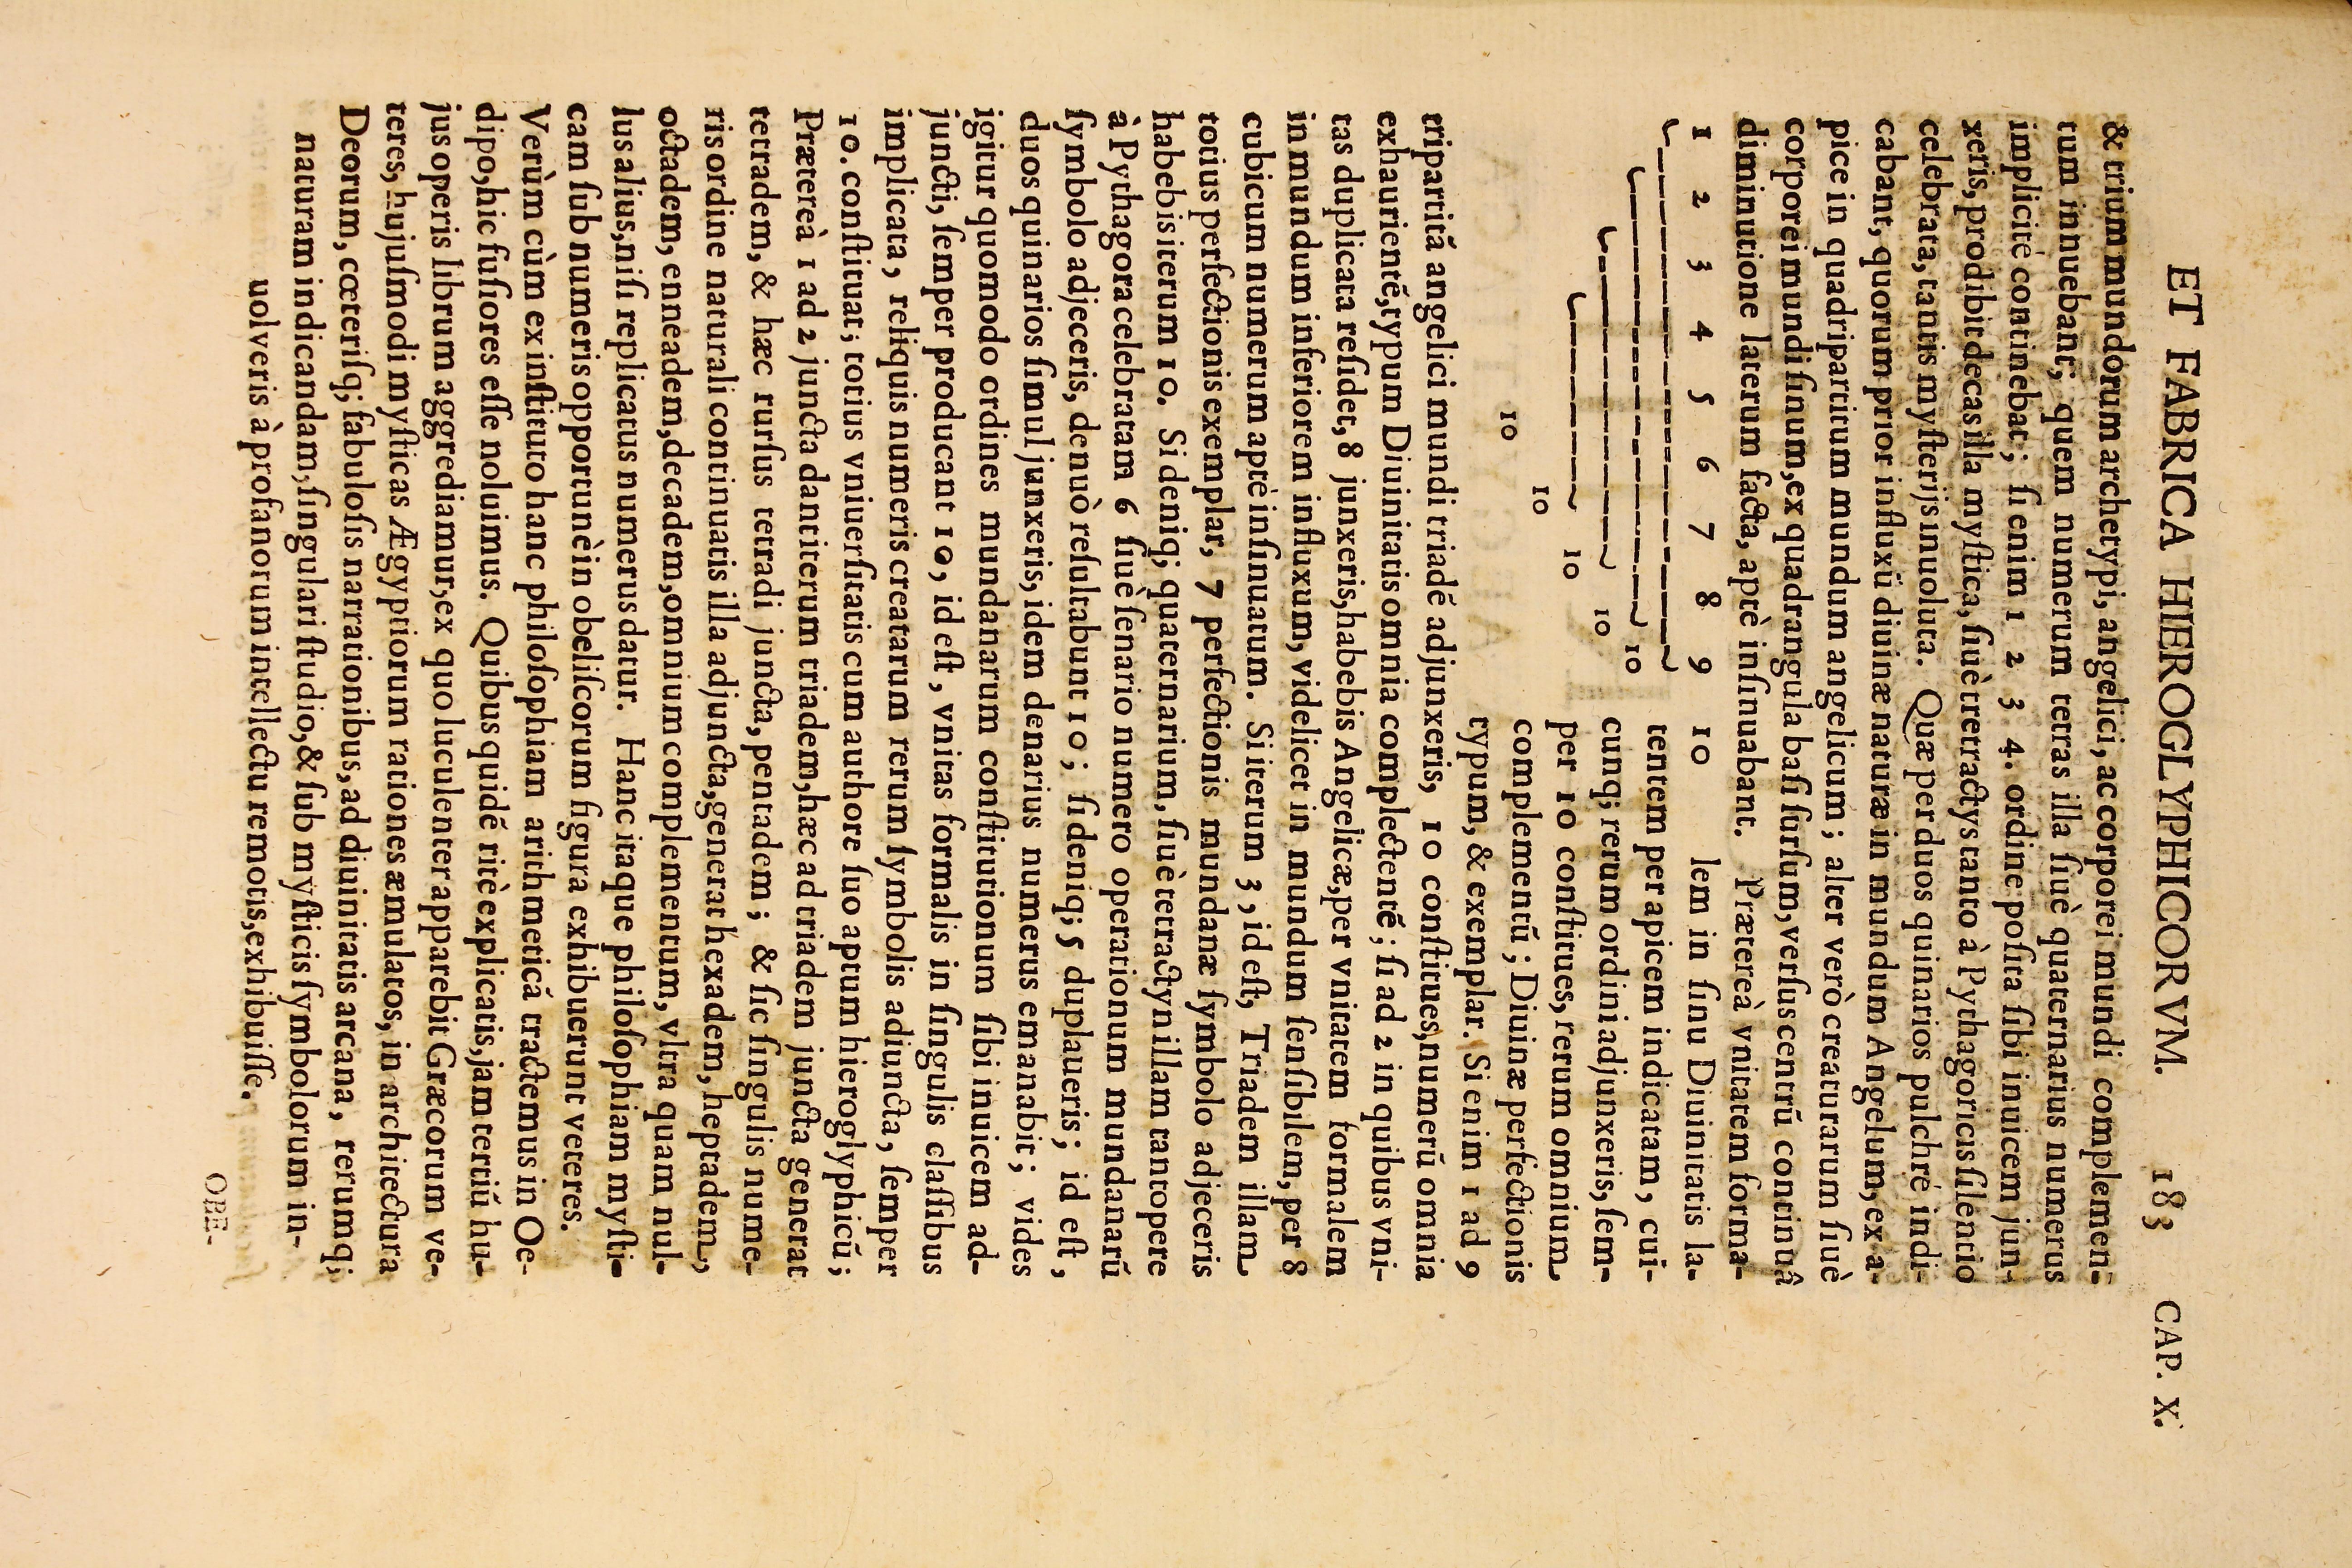 ET FABRICA HIEROGLYPHICORVM. 183 CAP. X.
& trium mundorum archetypi, angelici, ac corporei mundi complemen-
tum innuebant; quem numerum tetras illa ſiuè quaternarius numerus
implicitè continebat; ſi enim 1 2 3 4. ordine poſita ſibi inuicem jun-
xeris, prodibit decas illa myſtica, ſiuè tretractys tanto à Pythagoricis ſilentio
celebrata, tantis myſterijs inuoluta. Quæ per duos quinarios pulchrè indi-
cabant, quorum prior influxũ diuinæ naturæ in mundum Angelum, ex a-
pice in quadripartitum mundum angelicum; alter verò creaturarum ſiuè
corporei mundi ſinum, ex quadrangula baſi ſurſum, verſus centrũ continuâ
diminutione laterum facta, aptè inſinuabant. Prætereà vnitatem forma-
1 2 3 4 5 6 7 8 9 10 lem in ſinu Diuinitatis la-
tentem per apicem indicatam, cui-
10
cunq; rerum ordini adjunxeris, ſem-
10
per 10 conſtitues, rerum omnium
10
complementũ; Diuinæ perfectionis
10
typum, & exemplar. Si enim 1 ad 9
10
tripartitã angelici mundi triadẽ adjunxeris, 10 conſtitues, numerũ omnia
exhaurientẽ, typum Diuinitatis omnia complectentẽ; ſi ad 2 in quibus vni-
tas duplicata reſidet, 8 junxeris, habebis Angelicæ, per vnitatem formalem
in mundum inferiorem influxum, videlicet in mundum ſenſibilem, per 8
cubicum numerum aptè inſinuatum. Si iterum 3, id eſt, Triadem illam
totius perfectionis exemplar, 7 perfectionis mundanæ ſymbolo adjeceris
habebis iterum 10. Si deniq; quaternarium, ſiuè tetractyn illam tantopere
à Pythagora celebratam 6 ſiuè ſenario numero operationum mundanarũ
ſymbolo adjeceris, denuò reſultabunt 10; ſi deniq; 5 duplaueris; id eſt,
duos quinarios ſimul junxeris, idem denarius numerus emanabit; vides
igitur quomodo ordines mundanarum conſtitutionum ſibi inuicem ad-
juncti, ſemper producant 10, id eſt, vnitas formalis in ſingulis claſſibus
implicata, reliquis numeris creatarum rerum ſymbolis adiuncta, ſemper
10. conſtituat; totius vniuerſitatis cum authore ſuo aptum hieroglyphicũ;
Prætereà 1 ad 2 juncta dant iterum triadem, hæc ad triadem juncta generat
tetradem, & hæc rurſus tetradi juncta, pentadem; & ſic ſingulis nume-
ris ordine naturali continuatis illa adjuncta, generat hexadem, heptadem,
octadem, enneadem, decadem, omnium complementum, vltra quam nul-
lus alius, niſi replicatus numerus datur. Hanc itaque philoſophiam myſti-
cam ſub numeris opportunè in obeliſcorum figura exhibuerunt veteres.
Verùm cùm ex inſtituto hanc philoſophiam arithmeticã tractemus in Oe-
dipo, hic fuſiores eſſe noluimus. Quibus quidẽ ritè explicatis, jam tertiũ hu-
jus operis librum aggrediamur, ex quo luculenter apparebit Græcorum ve-
teres, hujuſmodi myſticas Ægyptiorum rationes æmulatos, in architectura
Deorum, cœteriſq; fabuloſis narrationibus, ad diuinitatis arcana, rerumq;
naturam indicandam, ſingulari ſtudio, & ſub myſticis ſymbolorum in-
uolveris à profanorum intellectu remotis, exhibuiſſe.
OBE-